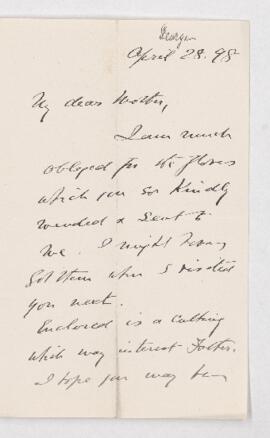 George
April 28. 98
My dear Mother,
I am much
obliged for the gloves
which you so kindly
mended & sent to
me. I might have
got them when I visited
you next.
Enclosed is a cutting
which may interest Father.
I hope you may have